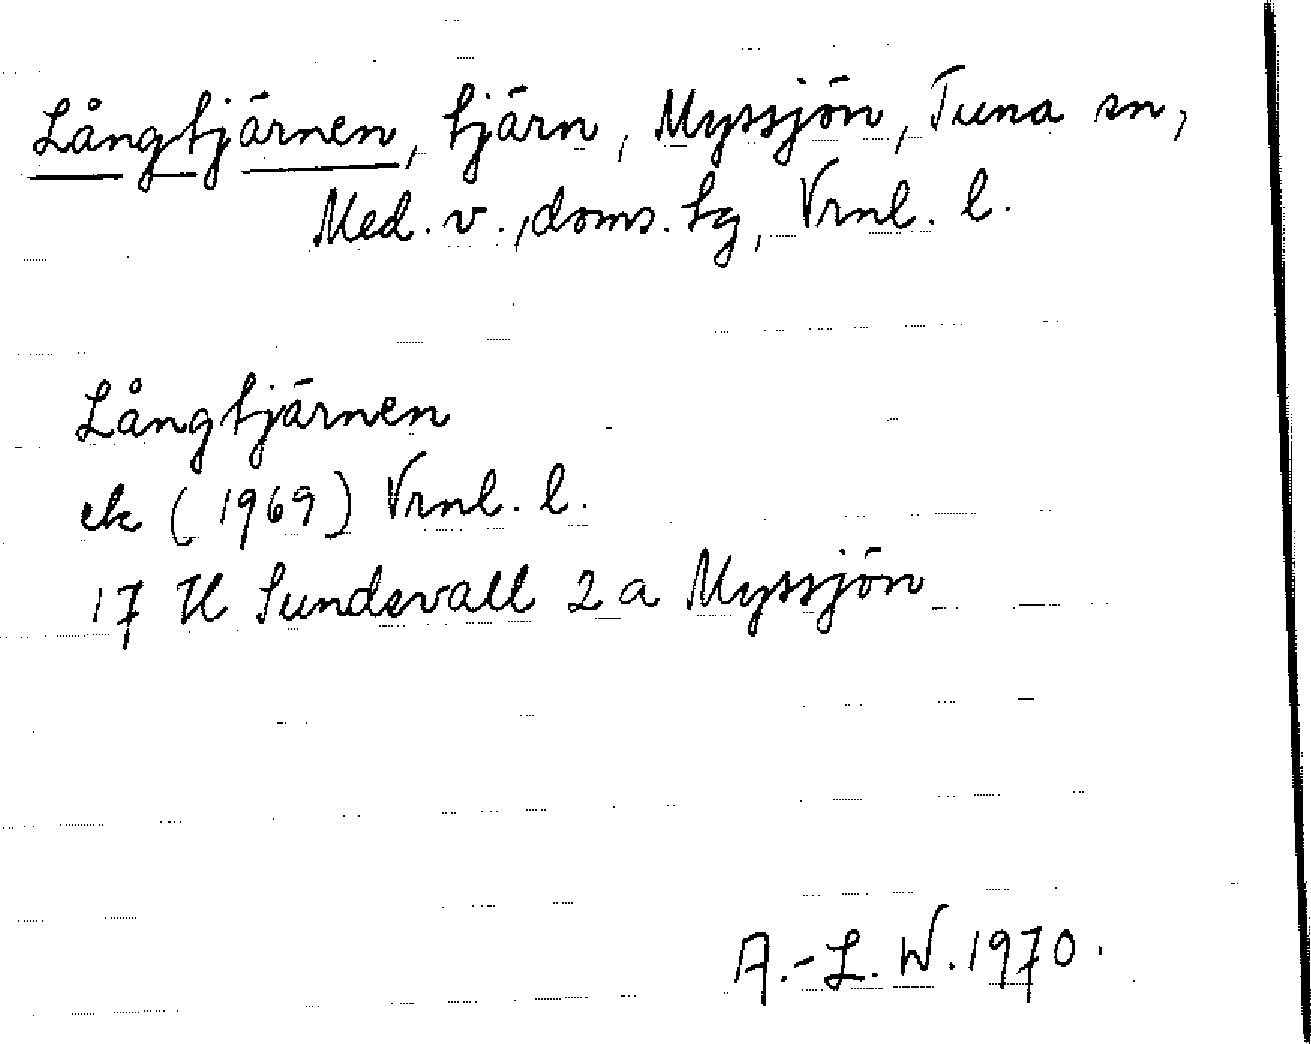 Långtjärnen, tjärn, Myssjön, Tuna sn,
Med. v., doms. tg, Vrnl. l.
Långtjärnen
ek (1969) Vrnl. l.
17 H Sundsvall 2 a Myssjön
A.-L. W. 1970.